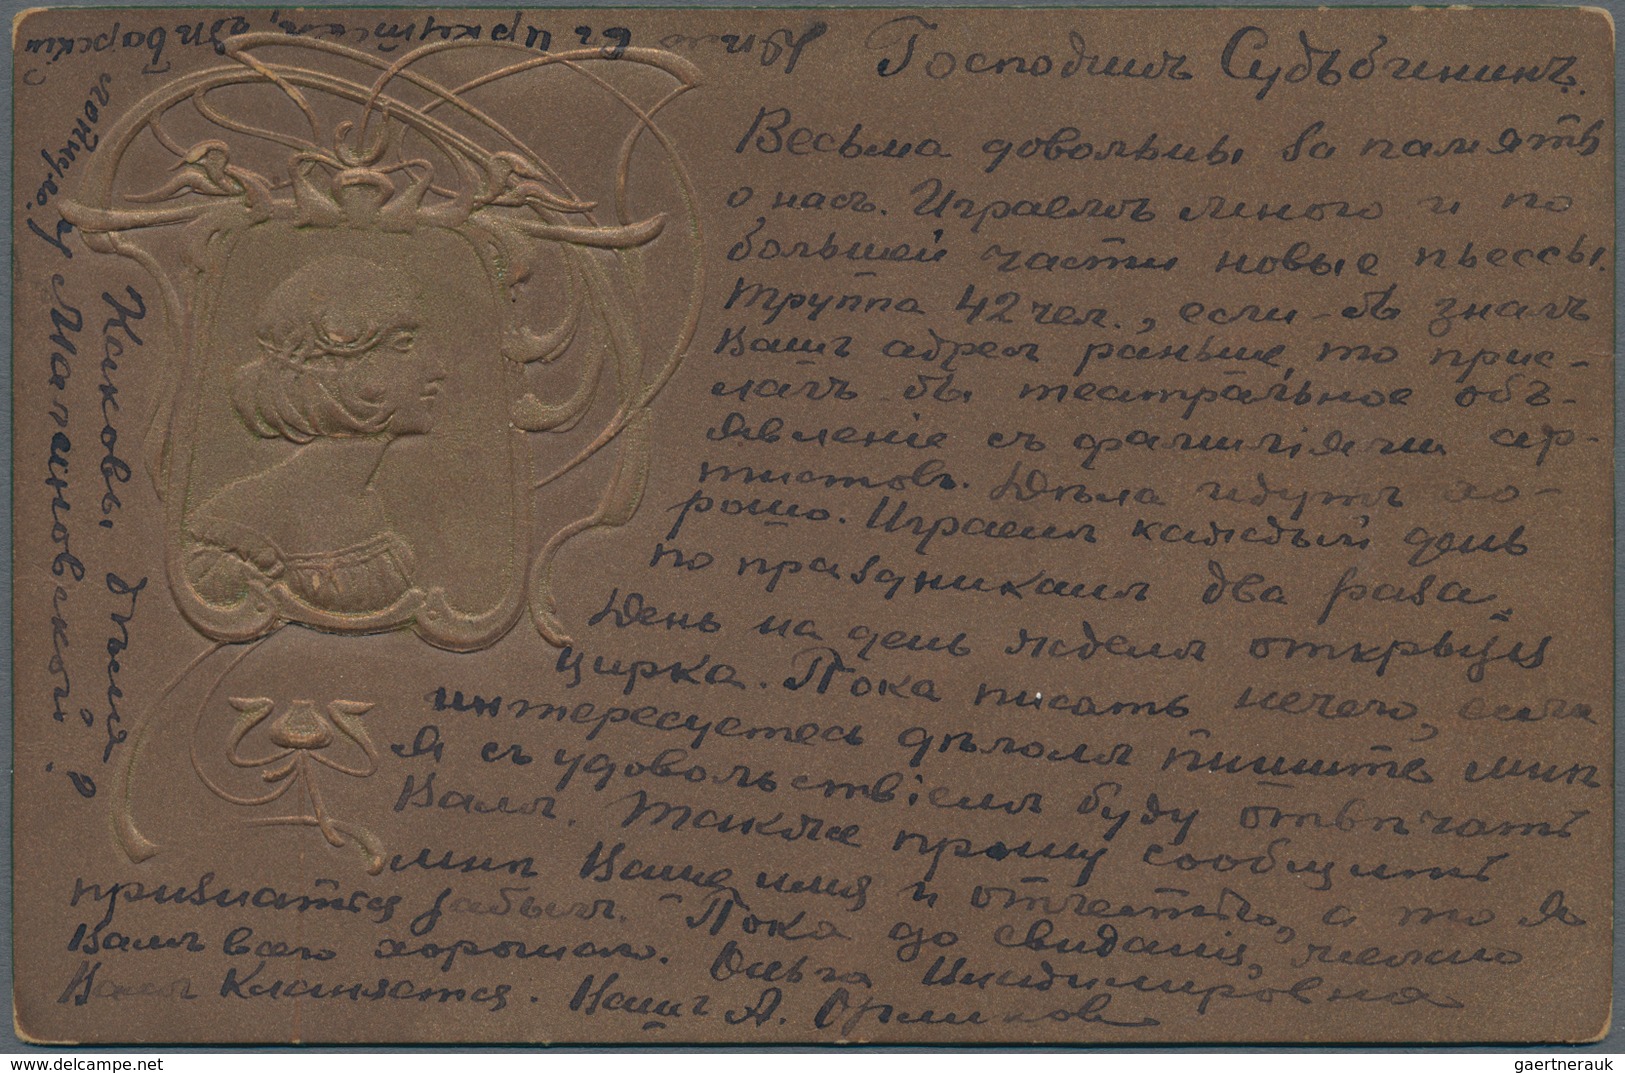 Господинъ Судьбининъ.
Весьма довольны за память
о насъ. Играемъ много и по
большей части новые пьессы.
Труппа 42 чел., если-бы зналъ
Вашъ адресъ раньше, то прис-
лалъ бы театральное объ-
явленіе съ фамиліями ар-
тистовъ. Дѣла идутъ хо-
рошо. Играемъ каждый день
по праздникамъ два раза.
День на день ждемъ открытія
цирка. Пока писать нечего, если
интересуетесь дѣломъ пишите мнѣ
я съ удовольствіемъ буду отвѣчать
Вамъ. Также прошу сообщить
мнѣ Ваше имя и отчество, а то я
признаться забылъ. Пока до свиданія, желаю
Вамъ всего хорошаго. Ольга Владимировна
Вамъ Кланяется. Вашъ А.
Каковы дѣла
у Малиновской?
въ Иркутскѣ,
delcampe.net
gaertnerauk